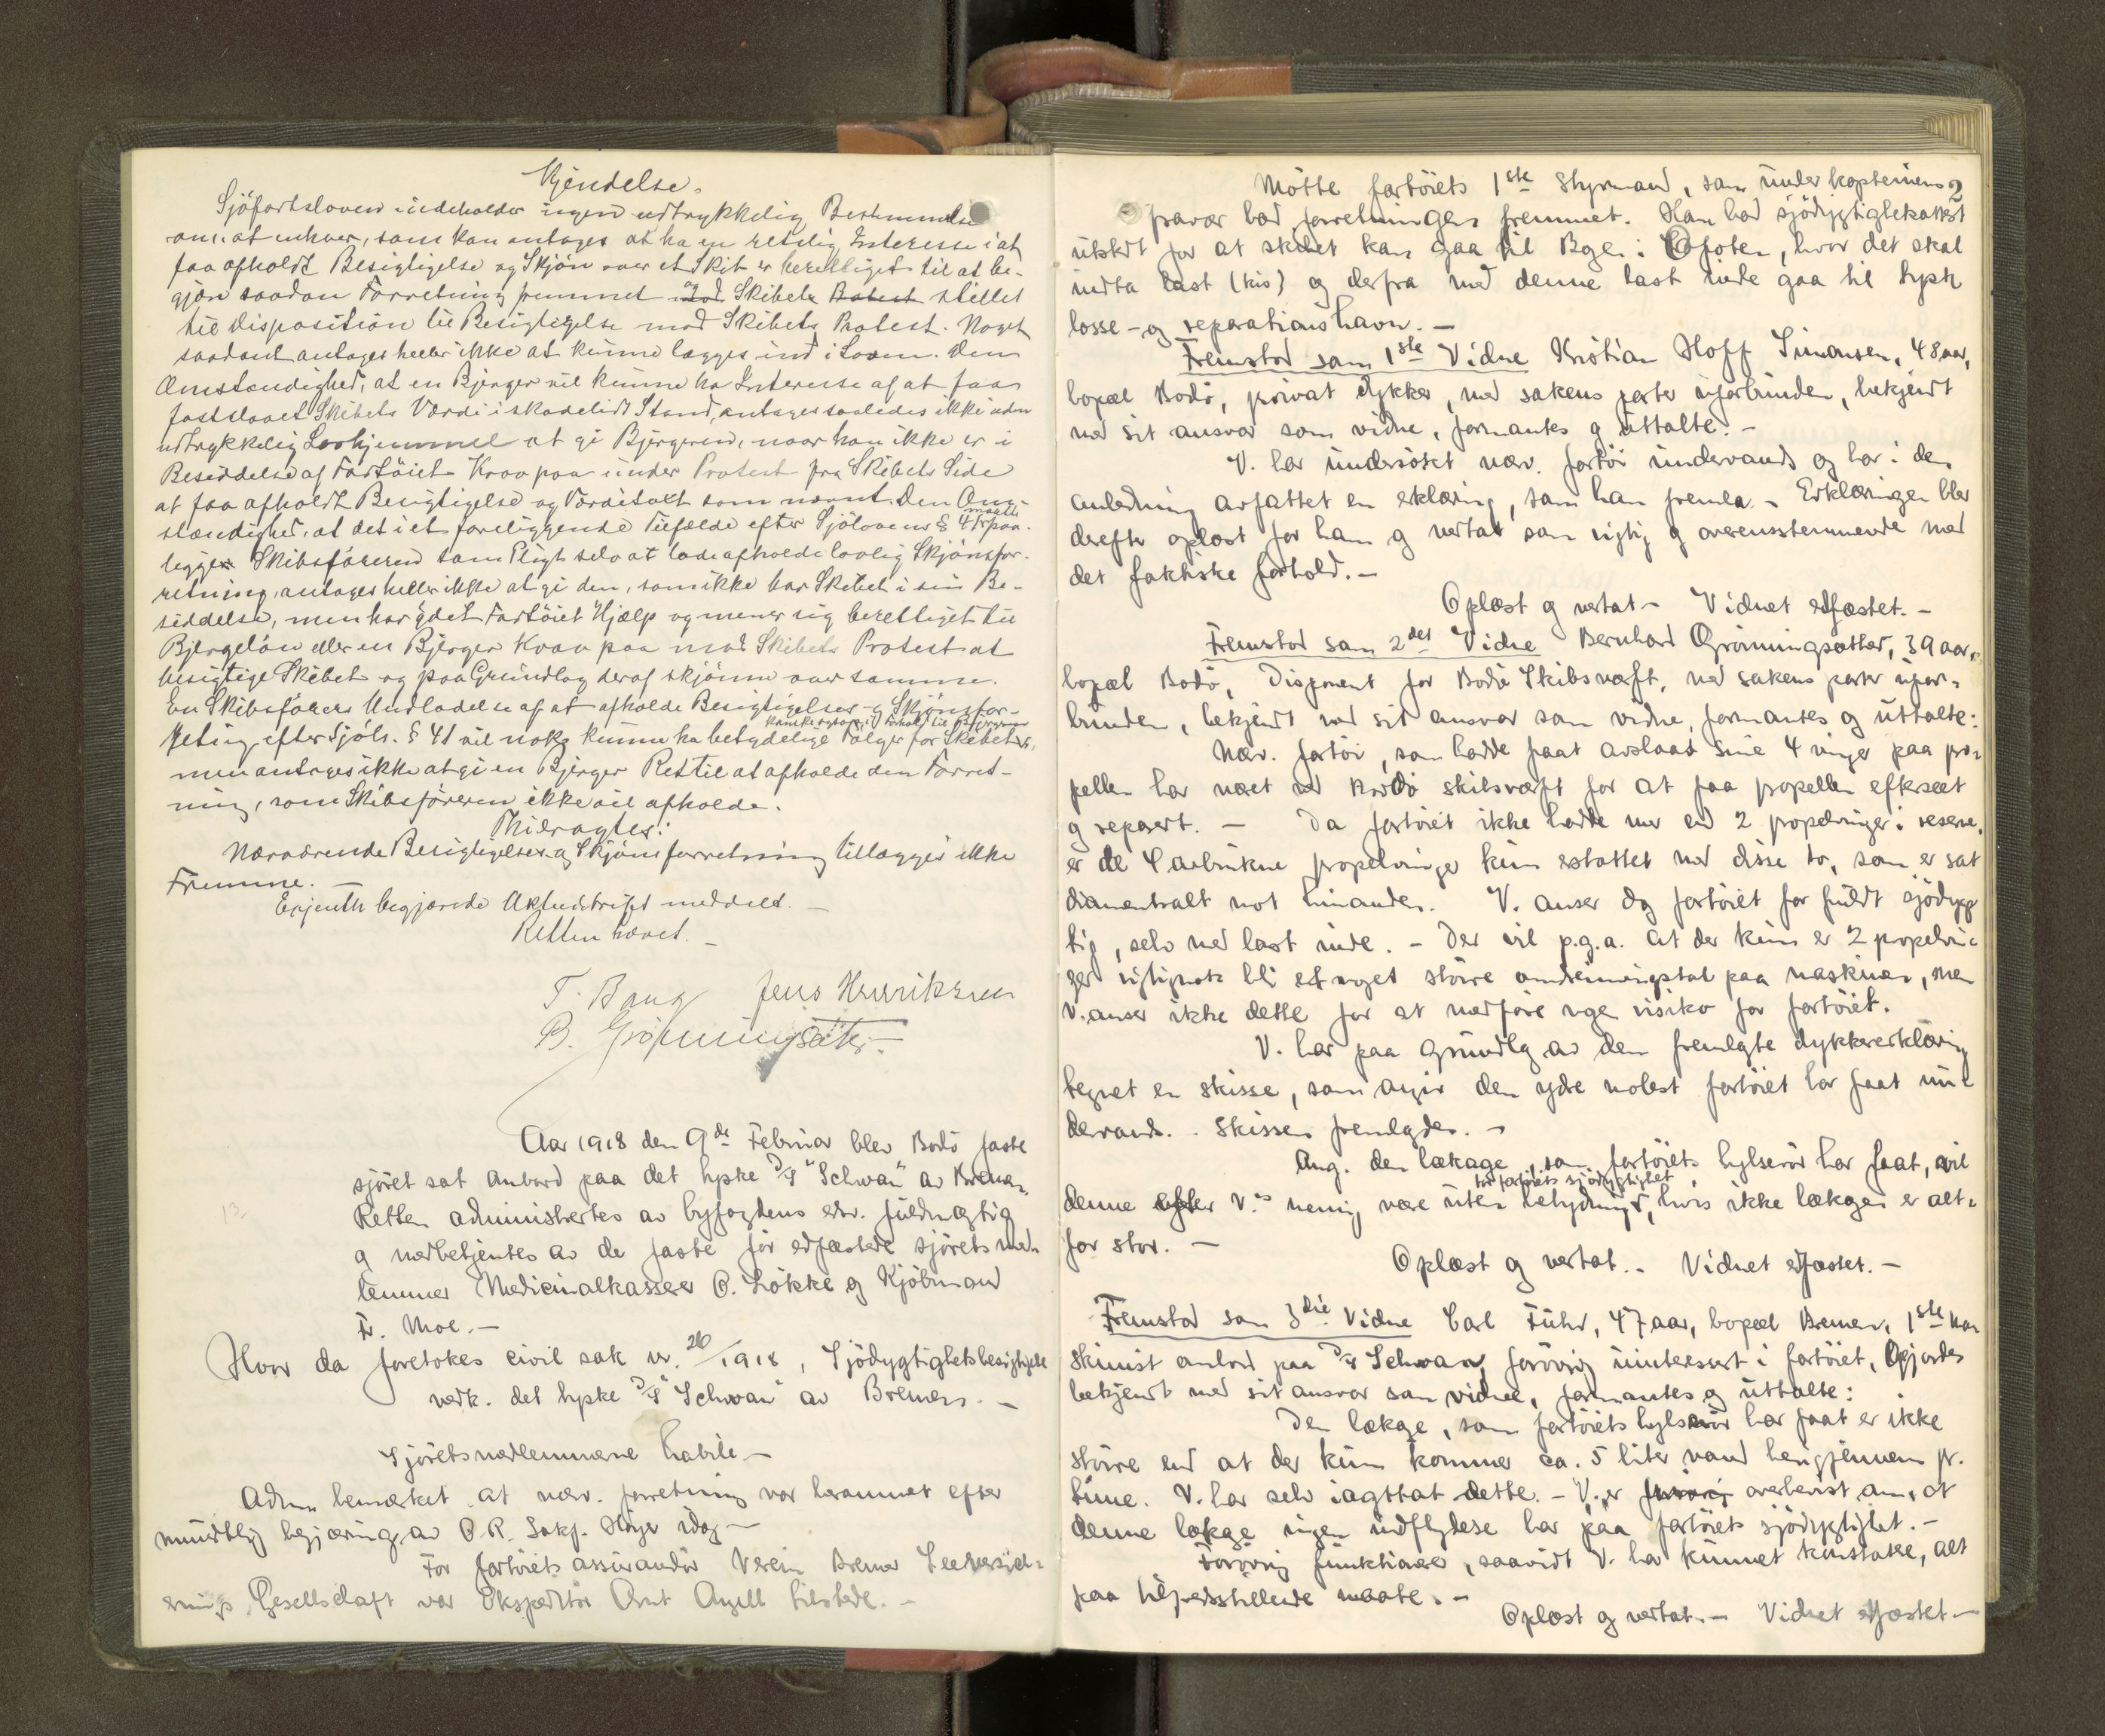 Kjendelse.
Sjöfartsloven indeholder ingen udtrykkelig Bestemmelse
om, at enhver, som kan antages at ha en retslig Interesse i at
faa afholdt Besigtigelse og Skjön over et Skib er berettiget til at be-
gjære saadan Forretning fremmet og Skibets stillet
til Disposition til Besigtigelse mod Skibets Protest. Noget
saadant antages heller ikke at kunne lægges ind i Loven. Den
Omstændighed, at en Bjerger vil kunne ha Interesse af at faa
fastslaaet Skibets Værdi i skadelidt Stand, antages saaledes ikke uden
udtrykkelig Lovhjemmel at gi Bjergeren, naar han ikke er i
Besiddelse af Fartöiet Krav paa under Protest fra Skibets Side
at faa afholdt Besigtigelse og Værditaxt som nævnt. Den Om-
stændighed, at det i et foreliggende Tilfælde efter Sjölovens § 41 maatte paa-
ligge Skibsföreren som Pligt selv at lade afholde lovlig Skjönsfor-
retning, antages heller ikke at gi den, som ikke har Skibet i sin Be-
siddelse, men har ydet Fartöiet Hjælp og mener sig berettiget til
Bjergelön eller en Bjerger Krav paa mod Skibets Protest at
besigtige Skibet og paa Grundlag deraf skjönne over samme.
En Skibsförers Undladelse af at afholde Besigtigelses- og Skjönsfor-
retning efter Sjöls. § 41 vil nok kunne ha betydelige Fölger for Skibet, kanske ogsaa i Forhold til Bjergeren
men antages ikke at gi en Bjerger Ret til at afholde den Forret-
ning, som Skibsföreren ikke vil afholde.
Thi eragtes:
Nærværende Besigtigelses- og Skjönsforretning tillægges ikke
Fremme. —
Erjenth begjærede Aktudskrift meddelt. —
Retten hævet. —
T. Bang Jens Henriksen
B. Grönningsæter.
Aar 1918 den 9de Februar blev Bodö faste
sjöret sat ombord paa det tyske D/S "Schwan" av Bremen.
Retten administrertes av byfogdens edsv. fuldmægtig
og medbetjentes av de faste för edfæstede sjöretsmed-
lemmer Medicinalkasserer O. Lökke og Kjöbmand
Fr. Moe. —
Hvor da foretokes civil sak nr. 26/1918, Sjödygtighetsbesigtigelse
vedk. det tyske D/S "Schwan" av Bremen. —
Sjöretsmedlemmene habile —
Adm. bemerket at nærv. forretning var berammet efter
mundtlig begjæring av O.R. Sakf. Höyer idag —
For fartöiets assurandör Verein Bremer Seeversich-
erungs Gesellschaft var Ekspeditör Arnt Angell tilstede. —
2
Mötte fartöiets 1ste Styrmand, som under kapteinens
fravær bad forretningen fremmet. Han bad sjödygtighetsattest
utstedt for at skibet kan gaa til Bogen i Ofoten, hvor det skal
indta last (kis) og derfra med denne last inde gaa til tysk
losse- og reparationshavn. —
Fremstod som 1ste Vidne Kristian Hoff Simonsen, 48 aar,
bopæl Bodö, privat dykker, med sakens parter uforbunden, bekjendt
med sit ansvar som vidne, formantes og uttalte: —
V. har undersöket nærv. fartöi undervands og har i den
anledning avfattet en erklæring, som han fremla. — Erklæringen blev
derefter oplæst for ham og vedtat som rigtig og overensstemmende med
det faktiske forhold. —
Oplæst og vedtat — Vidnet edfæstet. —
Fremstod som 2det Vidne Bernhard Grönningsæther, 39 aar,
bopæl Bodö, Disponent for Bodö Skibsværft, med sakens parter ufor-
bunden, bekjendt med sit ansvar som vidne, formantes og uttalte:
Nærv. fartöi, som hadde faat avslaat sine 4 vinger paa pro-
pellen har været ved Bodö skibsværft for at faa propellen efterseet
og reparert. — Da fartöiet ikke hadde mer end 2 propelvinger i reserve,
er de 4 avbrukne propelvinger kun erstattet med disse to, som er sat
diametralt mot hinanden. V. anser dog fartöiet for fuldt sjödyg-
tig, selv med last inde. — Der vil p.g.a. at der kun er 2 propelvin-
ger rigtignok bli et noget större omdreiningstal paa maskinen, men
V. anser ikke dette for at medföre nogen risiko for fartöiet.
V. har paa grundlag av den fremlagte dykkererklæring
tegnet en skisse, som angir den ydre molest fartöiet har faat un-
dervands. — Skissen fremlagdes. —
Ang. den lækage, som fartöiets hylserör har faat, vil
denne efter V.s mening være uten betydning for fartöiets sjödygtighet, hvis ikke lækagen er alt-
for stor. —
Oplæst og vedtat. — Vidnet edfæstet. —
Fremstod som 3die Vidne Carl Führ, 47 aar, bopæl Bremen, 1ste ma-
skinist ombord paa D/S Schwan, forövrig uinteressert i fartöiet, Gjordes
bekjendt med sit ansvar som vidne, formantes og uttalte:
Den lækage, som fartöiets hylserör har faat er ikke
större end at der kun kommer ca. 5 liter vand herigjennem pr.
time. V. har selv iagttat dette. — V. er overbevist om, at
denne lækage ingen indflydelse har paa fartöiets sjödygtighet. —
Forövrig funktionerer, saavidt V. har kunnet konstatere, alt
paa tilfredsstillende maate. —
Oplæst og vedtat. — Vidnet edfæstet —